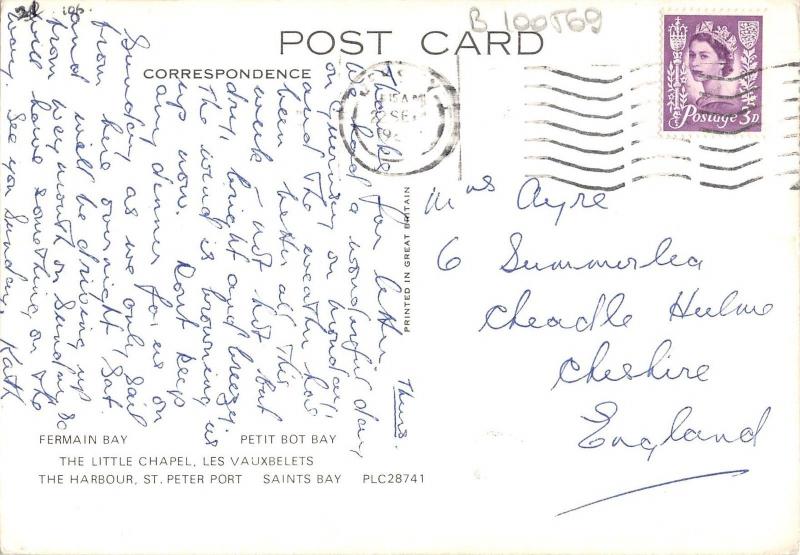 B 100569
POST CARD
CORRESPONDENCE
Thurs.
Thanks for letter
We had a wonderful day
on Guernsey on Monday,
and the weather has
been better all this
week – not hot but
dry, bright and breezy.
The wind is browning us
up now. Dont keep
any dinner for us on
Sunday as we only sail
from here overnight Sat.
and will be driving up
from Weymouth on Sunday so
will have something on the
way. See you Sunday, Kath
PRINTED IN GREAT BRITAIN
Postage 3D
Mrs Ayre
6 Summerlea
Cheadle Hulme
Cheshire
England
FERMAIN BAY PETIT BOT BAY
THE LITTLE CHAPEL, LES VAUXBELETS
THE HARBOUR, ST. PETER PORT SAINTS BAY PLC28741